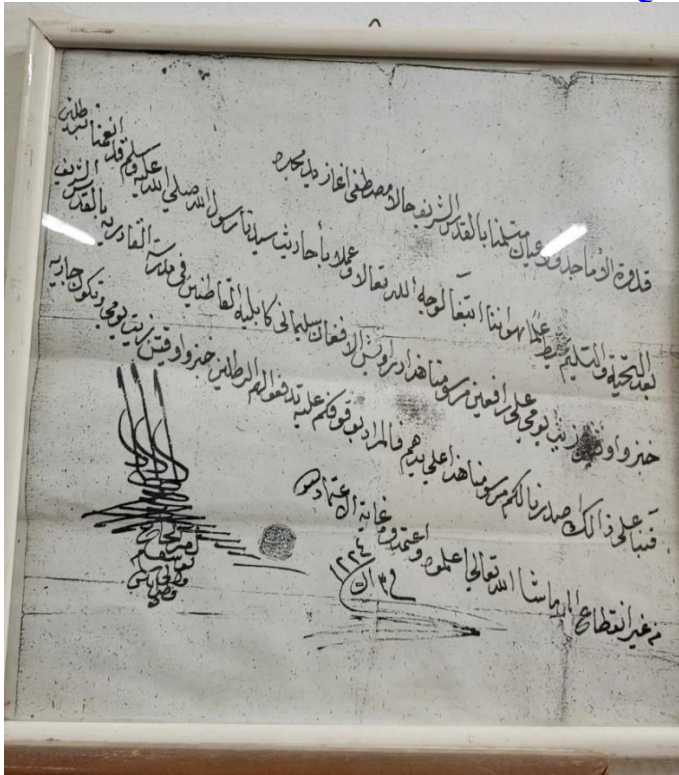 قدوة الأماجد وعيان متسلمنا بالقدس الشريف حالا مصطفى اغا زيد مجده
بعد التحية والتسليم نحيط علمًا بهو اننا ابتغآ لوجه الله تعالا وعملا بأحاديث سيدنا رسول الله صلى الله عليه وسلم قد انعمنا برطلين
خبز واوقيتين زيت يومي على رافعين مرسومنا هذا دراويش الافغان سليمانى كابليه القاطنين في مدرسة القادريه بالقدس الشريف
فبنآ على ذالك اصدرنا لكم مرسومنا هذا على يدهم فالمراد بوقوفكم عليه تدفعوا لهم الرطلين خبز واوقيتين زيت يومي وتكون جاريه
من غير انقطاع الى ماشا الله تعالى اعلموه واعتمدوه غاية الاعتماد
في ٣ ن
١٢٢٤